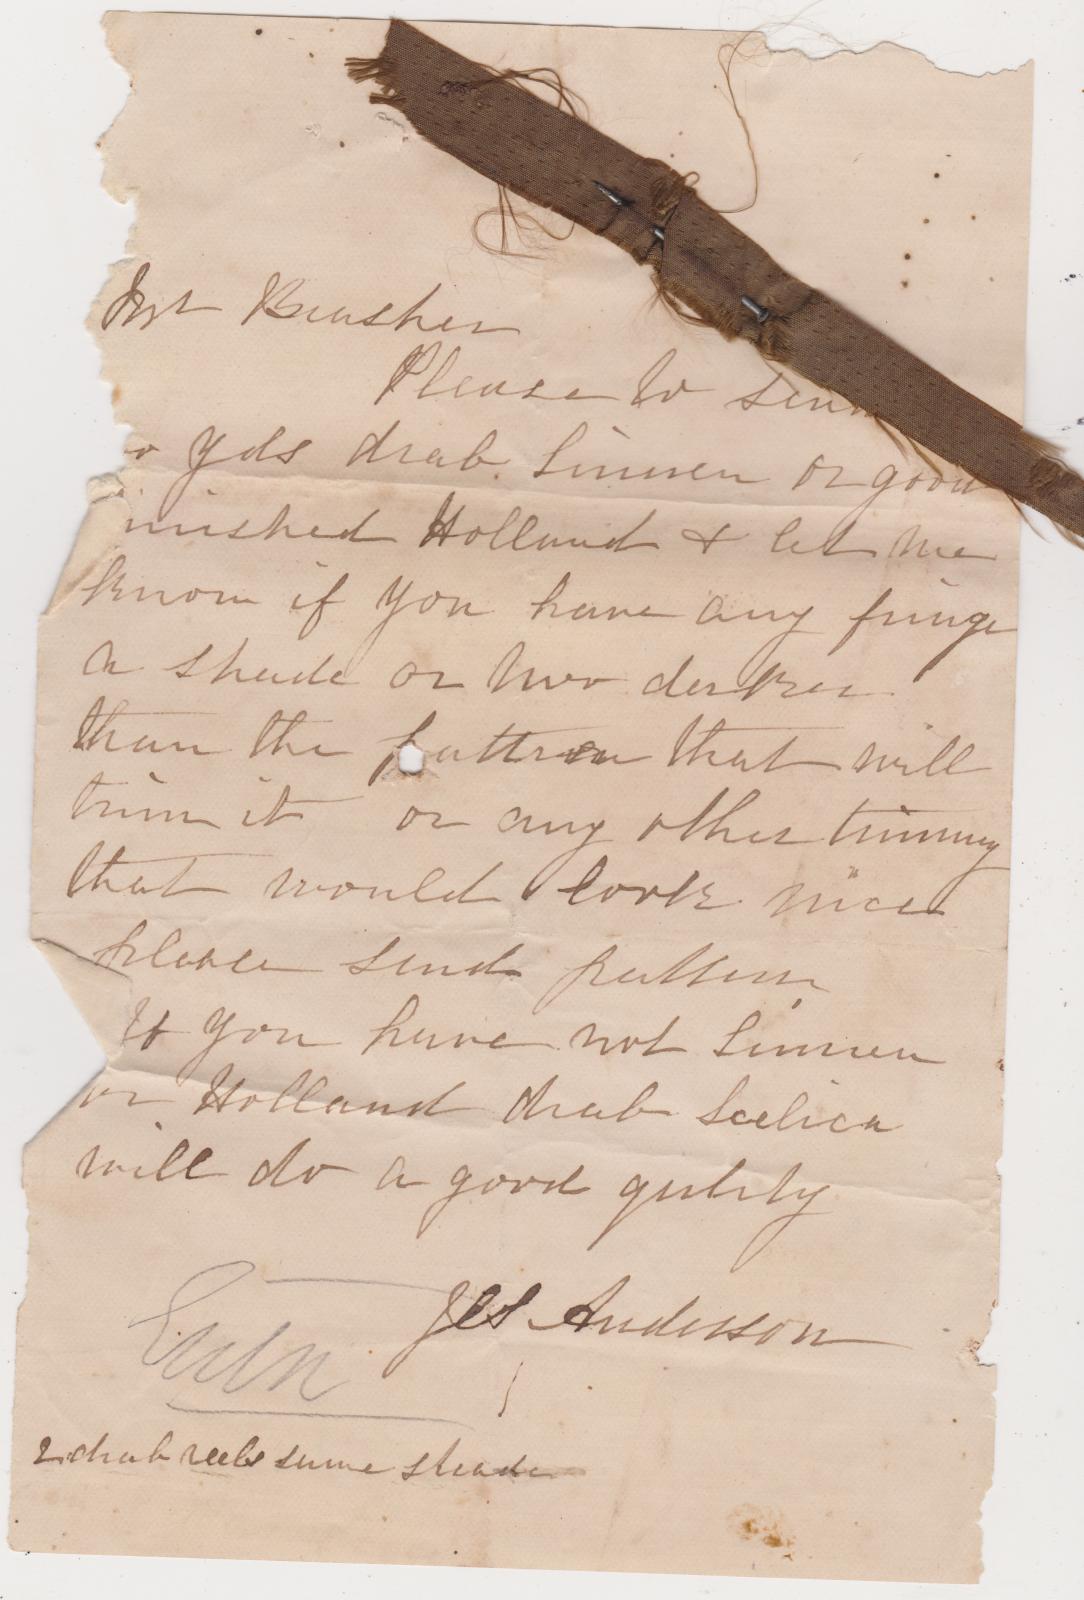 Brasher
Please to send
yds drab Linnen or good
inished Holland & let me
know if you have any fringe
a shade or two darker
than the pattren that will
trim it or any other trimmg
that would look nice
please send pattern
If you have not Linnen
or Holland drab Scelica
will do a good qulity
Jas Anderson
2 drab reels same shade